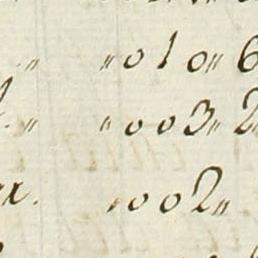 〃 〃010〃6
.〃 〃003〃2
x. 〃002〃